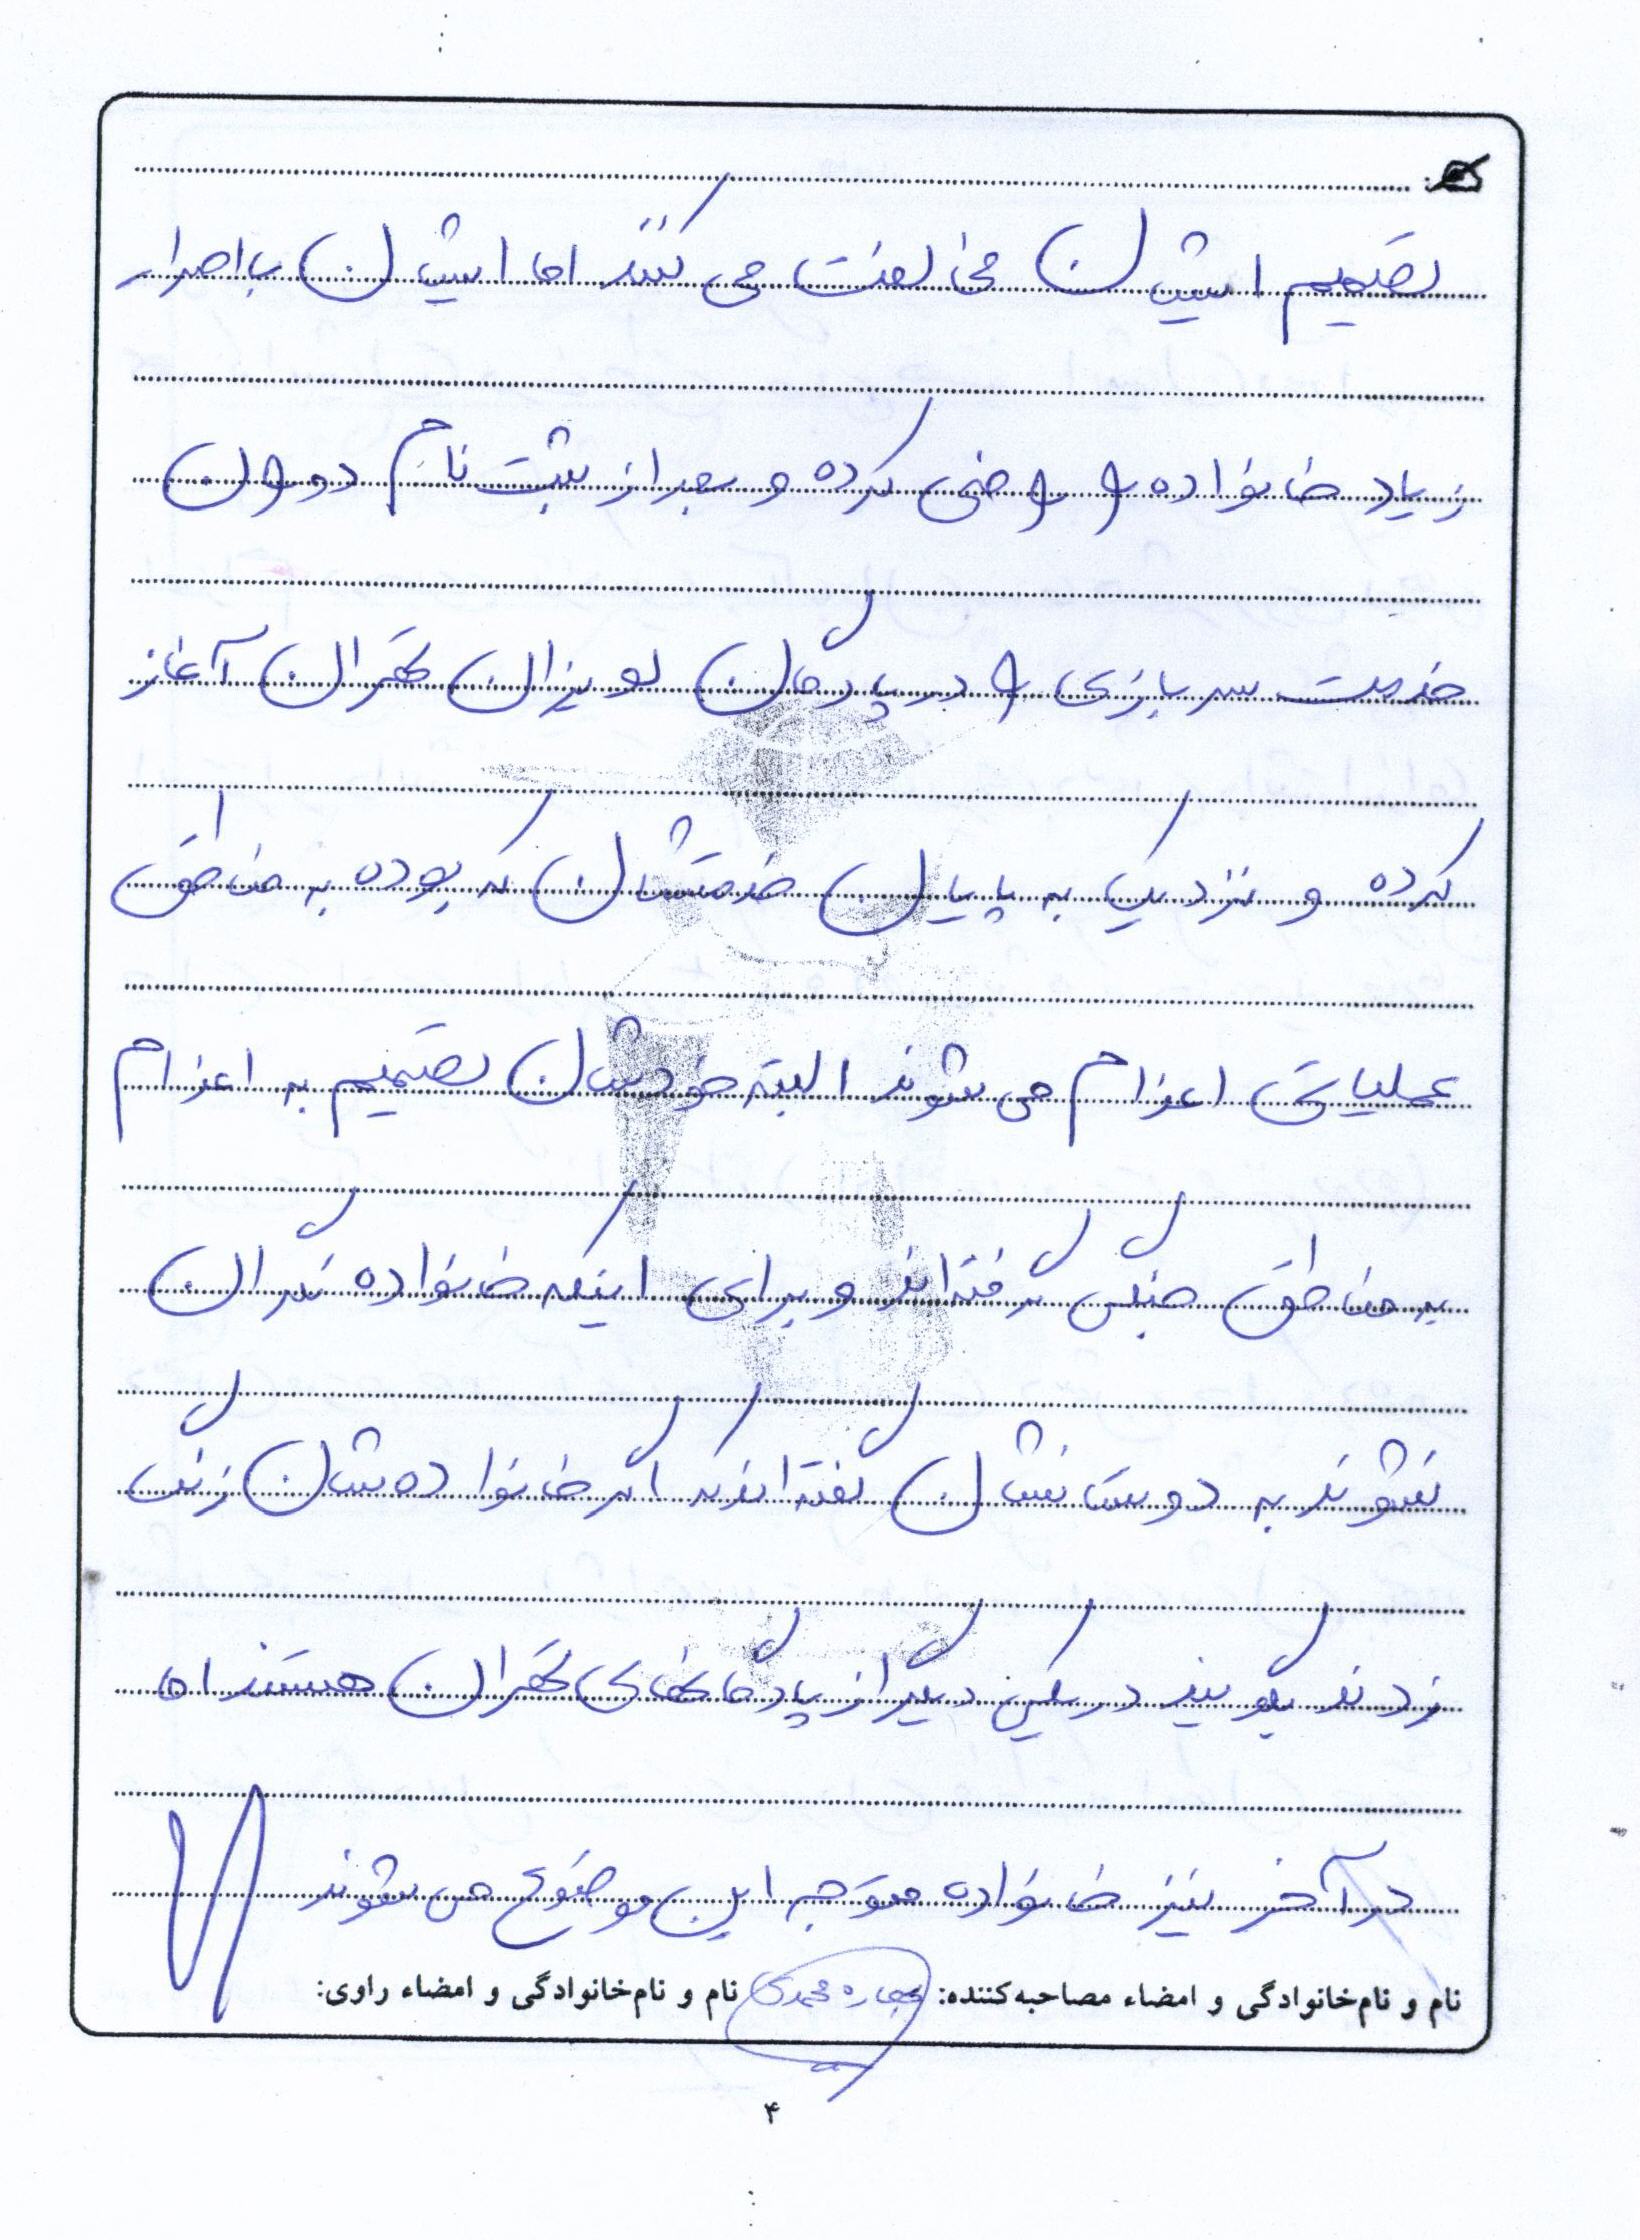 تصمیم ایشان مخالفت می کنند اما ایشان با اصرار
زیاد خانواده را راضی کرده و بعد از ثبت نام دوران
خدمت سربازی را در پادگان لویزان تهران آغاز
کرده و نزدیک به پایان خدمتشان که بوده به مناطق
عملیاتی اعزام می شوند البته خودشان تصمیم به اعزام
به مناطق جنگی گرفته اند و برای اینکه خانواده نگران
نشوند به دوستانشان گفته اند که اگر خانواده شان زنگ
زدند بگویید در یکی دیگر از پادگانهای تهران هستند اما
در آخر نیز خانواده متوجه این موضوع می شوند
نام و نام‌خانوادگی و امضاء مصاحبه‌کننده: محمدی نام و نام‌خانوادگی و امضاء راوی:
۴